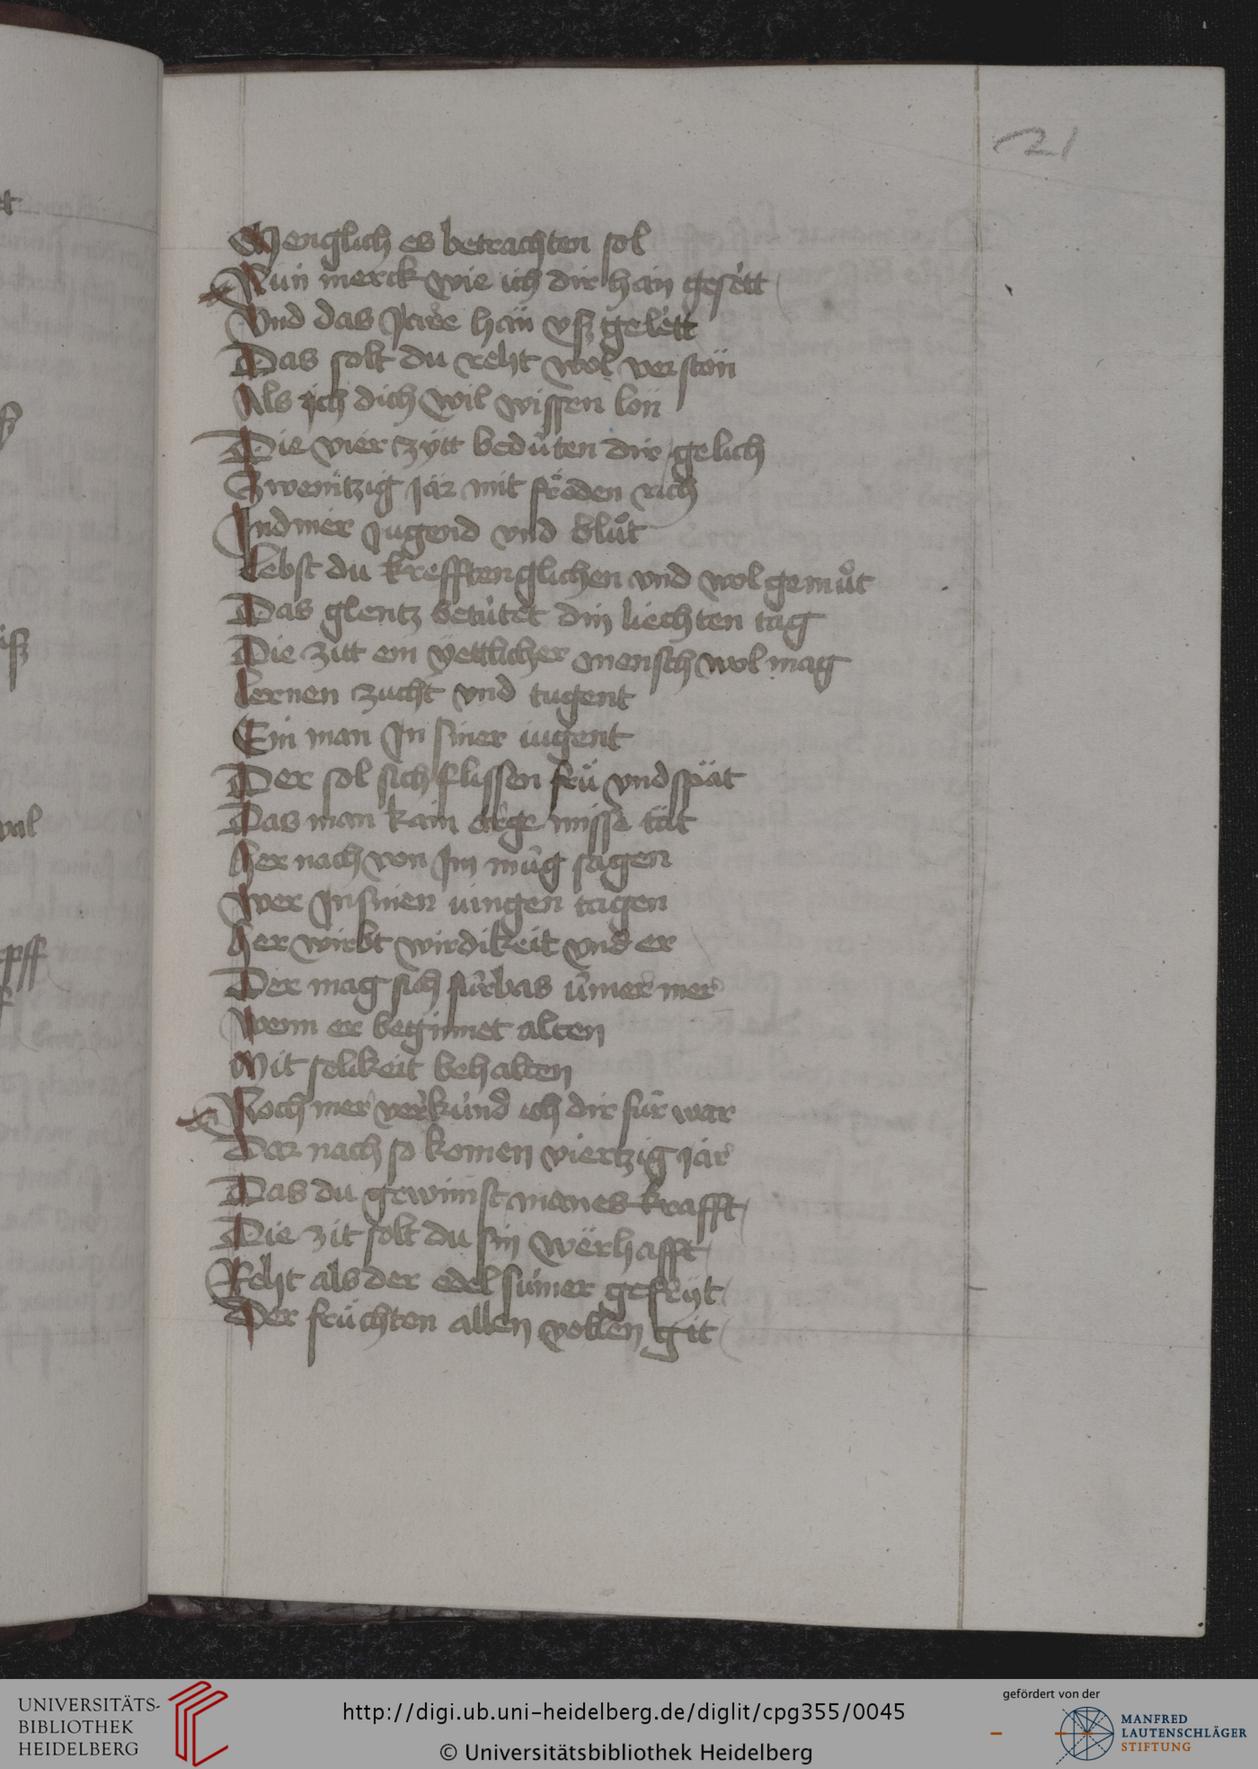 21
Menglich es betrachten sol
Nün merck wie ich dir han gesëtt
Vnd das Jare hän vsz gelëtt
Das solt du reht wol verston
Als ich dich wil wissen lon
Die vier zÿtt bedůten dir gelich
Zwentzig jär mit fröden rich
In diner jugend vnd blůt
Lebst du krefftenglichen vnd wol gemůt
Das glentz betütet din liechten tag
Die zitt ein yettlicher mensch wol mag
Lernen zucht vnd tugent
Ein man In siner iugent
Der sol sich flissen frü vnd spät
Das man kain arge misse tät
Her nach von Im müg sagen
Wer In sinen iungen tagen
Her wirbt wirdikeit vnd er
Der mag sich fürbas ümer mer
Wenn er beginnet alten
Mit selikeit behalten
Noch mer verkünd ich dir für war
Dar nach so komen viertzig jar
Das du gewinnst manes krafft
Die zit solt du sin wërhafft
Reht als der edel sumer gefryt
Der früchten allen vollen git
UNIVERSITÄTS-
BIBLIOTHEK
HEIDELBERG
http://digi.ub.uni-heidelberg.de/diglit/cpg355/0045
© Universitätsbibliothek Heidelberg
gefördert von der
MANFRED
LAUTENSCHLÄGER
STIFTUNG